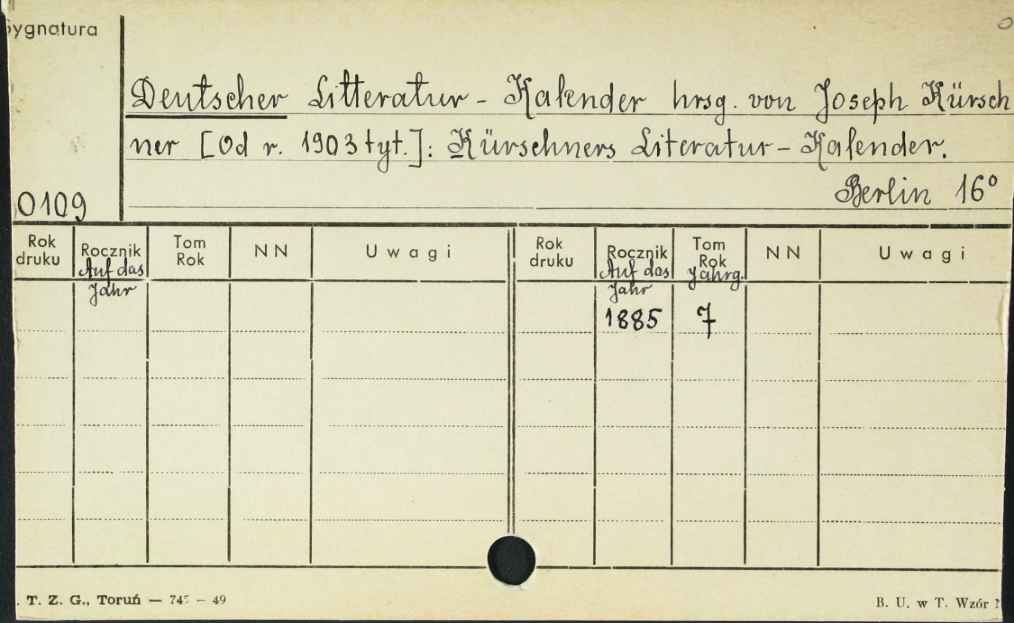 Sygnatura
Deutscher Litteratur - Kalender hrsg. von Joseph Kürsch
ner [Od r. 1903 tyt.]: Kürschners Literatur - Kalender.
Berlin 16°
0109
Rok druku Rocznik Tom Rok NN Uwagi Rok druku Rocznik Tom Rok NN Uwagi
Auf das Jahr Auf das Jahr Jahrg.
1885 7
. T. Z. G., Toruń — 745 – 49 B. U. w T. Wzór